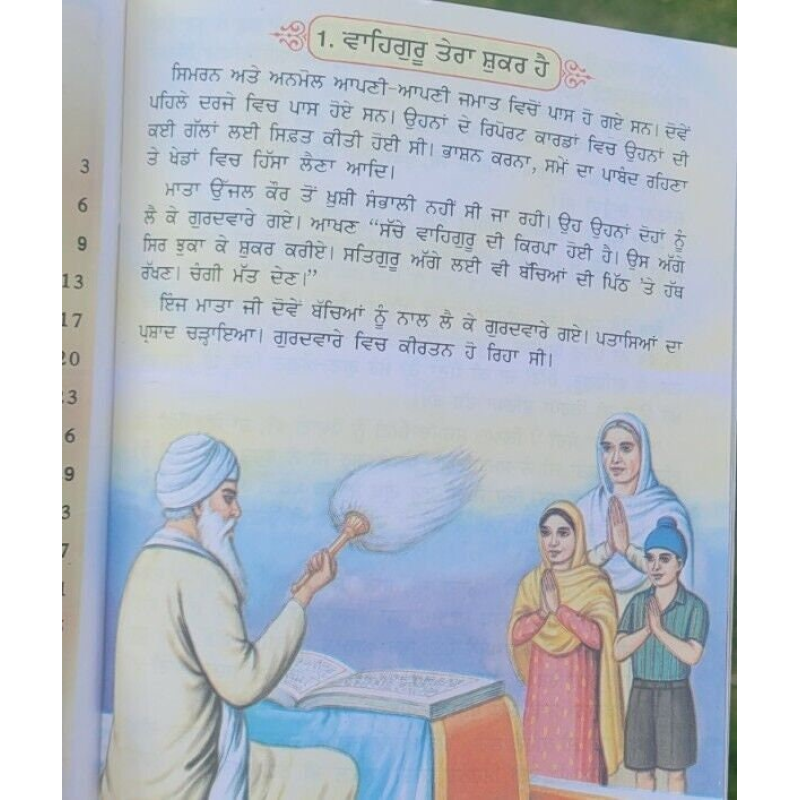 1. ਵਾਹਿਗੁਰੂ ਤੇਰਾ ਸ਼ੁਕਰ ਹੈ
ਸਿਮਰਨ ਅਤੇ ਅਨਮੋਲ ਆਪਣੀ-ਆਪਣੀ ਜਮਾਤ ਵਿਚੋਂ ਪਾਸ ਹੋ ਗਏ ਸਨ। ਦੋਵੇਂ
ਪਹਿਲੇ ਦਰਜੇ ਵਿਚ ਪਾਸ ਹੋਏ ਸਨ। ਉਹਨਾਂ ਦੇ ਰਿਪੋਰਟ ਕਾਰਡਾਂ ਵਿਚ ਉਹਨਾਂ ਦੀ
ਕਈ ਗੱਲਾਂ ਲਈ ਸਿਫ਼ਤ ਕੀਤੀ ਹੋਈ ਸੀ। ਭਾਸ਼ਨ ਕਰਨਾ, ਸਮੇਂ ਦਾ ਪਾਬੰਦ ਰਹਿਣਾ
ਤੇ ਖੇਡਾਂ ਵਿਚ ਹਿੱਸਾ ਲੈਣਾ ਆਦਿ।
ਮਾਤਾ ਉੱਜਲ ਕੌਰ ਤੋਂ ਖ਼ੁਸ਼ੀ ਸੰਭਾਲੀ ਨਹੀਂ ਸੀ ਜਾ ਰਹੀ। ਉਹ ਉਹਨਾਂ ਦੋਹਾਂ ਨੂੰ
ਲੈ ਕੇ ਗੁਰਦਵਾਰੇ ਗਏ। ਆਖਣ “ਸੱਚੇ ਵਾਹਿਗੁਰੂ ਦੀ ਕਿਰਪਾ ਹੋਈ ਹੈ। ਉਸ ਅੱਗੇ
ਸਿਰ ਝੁਕਾ ਕੇ ਸ਼ੁਕਰ ਕਰੀਏ। ਸਤਿਗੁਰੂ ਅੱਗੇ ਲਈ ਵੀ ਬੱਚਿਆਂ ਦੀ ਪਿੱਠ 'ਤੇ ਹੱਥ
ਰੱਖਣ। ਚੰਗੀ ਮੱਤ ਦੇਣ।”
ਇੰਜ ਮਾਤਾ ਜੀ ਦੋਵੇਂ ਬੱਚਿਆਂ ਨੂੰ ਨਾਲ ਲੈ ਕੇ ਗੁਰਦਵਾਰੇ ਗਏ। ਪਤਾਸਿਆਂ ਦਾ
ਪ੍ਰਸ਼ਾਦ ਚੜ੍ਹਾਇਆ। ਗੁਰਦਵਾਰੇ ਵਿਚ ਕੀਰਤਨ ਹੋ ਰਿਹਾ ਸੀ।
3
6
9
13
17
20